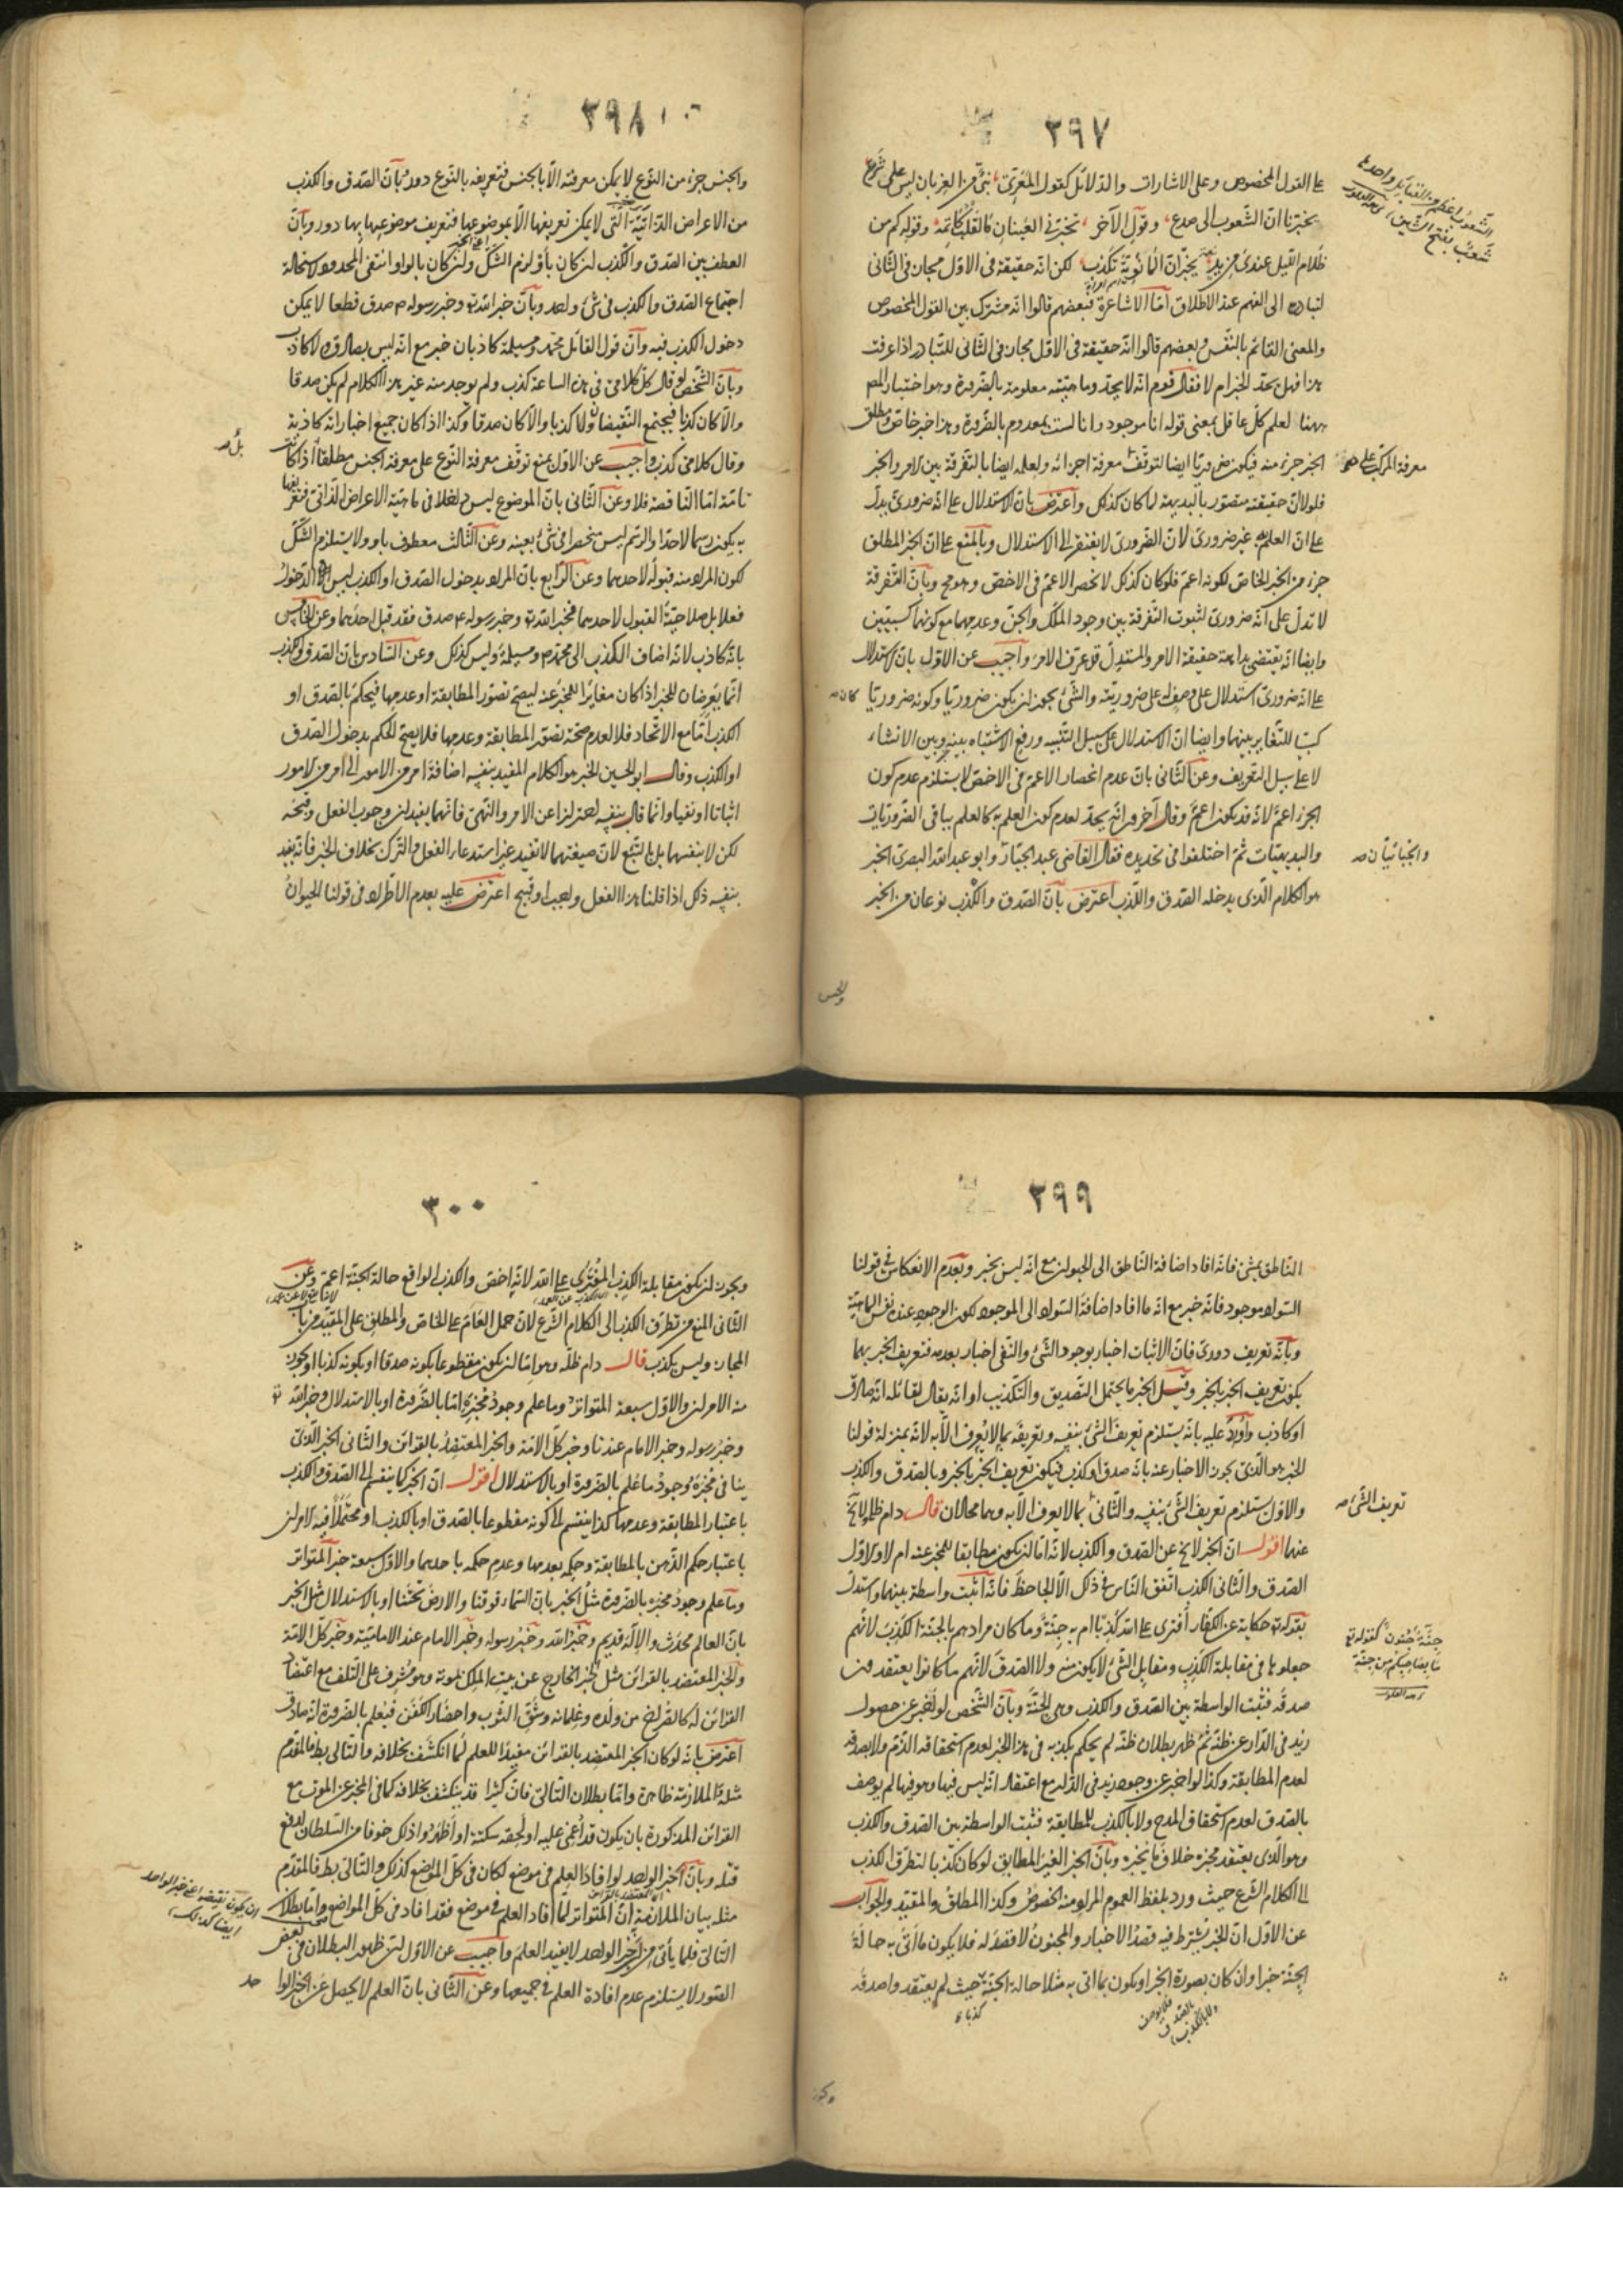 ٢٩٧
على القول المخصوص وعلى الاشارات والدلائل كقول المعرّي نبيّ من الغربان ليس على شرع
يخبّرنا انّ الشّعوب الى صدع وقول الآخر تخبّرني العينان ما القلب كاتمه وقوله كم من
ظلام اللّيل عندى من يد يخبر انّ المانويّة تكذب لكن انّه حقيقة فى الاوّل مجاز فى الثّانى
لتبادره الى الفهم عند الاطلاق امّا الاشاعرة فبعضهم قالوا انّه مشترك بين القول المخصوص
والمعنى القائم بالنّفس وبعضهم قالوا انّه حقيقة فى الاوّل مجاز فى الثانى للتّبادر اذا عرفت
هذا فهل يحدّ الخبر ام لا فقال قوم انّه لا يحدّ وماهيّته معلومة بالضّرورة وهو اختيار المص
ههنا لعلم كلّ عاقل بمعنى قوله انا موجود وانا لست بمعدوم بالضّرورة وهذا خبر خاصّ ومطلق
الخبر جزء منه فيكون ضروريّا ايضا لتوقّف معرفة اجزائه ولعلمه ايضا بالتّفرقة بين الامر والخبر
فلولا انّ حقيقته متصوّر بالبديهة لما كان كذلك واعترض بانّ الاستدلال على انّه ضرورىّ يدلّ
على انّ العلم به غير ضرورىّ لانّ الضّرورىّ لا يفتقر الى الاستدلال وبالمنع على انّ الخبر المطلق
جزء من الخبر الخاصّ لكونه اعمّ فلو كان كذلك لانحصر الاعمّ فى الاخصّ وهو مح وبانّ التّفرقة
لا تدلّ على انّه ضرورىّ لثبوت التّفرقة بين وجود الملك والجنّ وعدمهما مع كونهما كسبيّين
وايضا انّه يقتضى بداهة حقيقة الامر والمستدلّ قد عرّف الامر واجيب عن الاوّل بانّ الاستدلال
على انّه ضرورىّ استدلال على وصفه على ضروريّته والشّئ يجوز ان يكون ضروريّا وكونه ضروريّا
كسبيّا للتّغاير بينهما وايضا انّ الاستدلال على سبيل التّنبيه ورفع الاشتباه بينه وبين الانشاء
لا على سبيل التعريف وعن الثّانى بانّ عدم انحصار الاعمّ فى الاخصّ لا يستلزم عدم كون
الجزء اعمّ لانّه قد يكون اعمّ وقال آخرون انّه يحدّ لعدم كون العلم به كالعلم بباقى الضّروريّات
والبديهيّات ثمّ اختلفوا فى تحديده فقال القاضى عبد الجبّار وابو عبد الله البصرىّ الخبر
هو الكلام الّذى يدخله الصّدق والكذب اعترض بانّ الصّدق والكذب نوعان من الخبر
معرفة المركب على صح
كان صح
والجبائيان صح
والجنس
٢٩٨
والجنس جزء من النّوع لا يمكن معرفته الّا بالجنس فتعريفه بالنّوع دور وبانّ الصّدق والكذب
من الاعراض الذّاتيّة الّتى لا يمكن تعريفها الّا بموضوعها فتعريف موضوعها بها دور وبانّ
العطف بين الصّدق والكذب ان كان باو لزم الشّكّ وان كان بالواو انتفى المحدود لاستحالة
اجتماع الصّدق والكذب فى شئ واحد وبانّ خبر الله تع وخبر رسوله م صدق قطعا لا يمكن
دخول الكذب فيه وانّ قول القائل محمّد ومسيلمة كاذبان خبر مع انّه ليس بصادق ولا كاذب
وبانّ الشّخص لو قال كلّ كلامى فى هذه الساعة كذب ولم يوجد منه غير هذا الكلام لم يكن صدقا
والّا كان كذبا فيجتمع النّقيضان ولا كذبا والّا كان صدقا وكذا اذا كان جميع اخباراته كاذبة
وقال كلامى كذب واجيب عن الاوّل بمنع توقّف معرفة النّوع على معرفة الجنس مطلقا اذا كانت
تامّة امّا النّاقصة فلا وعن الثّانى بانّ الموضوع ليس داخلا فى ماهيّة الاعراض الذّاتىّ فتعريفها
به يكون رسما لا حدّا والرّسم ليس منحصرا فى شئ بعينه وعن الثّالث معطوف باو ولا يستلزم الشّكّ
لكون المراد منه قبوله لاحدهما وعن الرّابع بانّ المراد بدخول الصّدق او الكذب ليس الدّخول
فعلا بل صلاحيّة القبول لاحدهما فخبر الله تع وخبر رسوله م صدق فقد قبل احدهما وعن الخامس
بانّه كاذب لانّه اضاف الكذب الى محمّد م ومسيلمة وليس كذلك وعن السّادس بانّ الصّدق والكذب
انّما يعرضان للخبر اذا كان مغايرا للمخبر عنه ليصحّ تصوّر المطابقة او عدمها فيحكم بالصّدق او
الكذب امّا مع الاتّحاد فلا لعدم صحّة تصوّر المطابقة وعدمها فلا يصحّ الحكم بدخول الصّدق
او الكذب وقال ابو الحسين الخبر هو الكلام المفيد بنفسه اضافة امر من الامور الى امر من الامور
اثباتا او نفيا وانّما قال بنفسه احترازا عن الامر والنّهى فانّهما يفيدان وجوب الفعل وقبحه
لكن لا بنفسهما بل بالتّبع لانّ صيغتهما لا تفيد غير استدعاء الفعل والتّرك بخلاف الخبر فانّه يفيد
بنفسه ذلك اذا قلنا هذا الفعل واجب او قبيح اعترض عليه بعدم الاطّراد فى قولنا الحيوان
٢٩٩
النّاطق يمشى فانّه افاد اضافة النّاطق الى الحيوان مع انّه ليس بخبر وبعدم الانعكاس فى قولنا
السّواد موجود فانّه خبر مع انّه ما افاد اضافة السّواد الى الموجود لكون الوجود عنده نفس الماهيّة
وبانّه تعريف دورىّ فانّ الاثبات اخبار بوجود الشّئ والنّفى اخبار بعدمه فتعريف الخبر بهما
يكون تعريف الخبر بالخبر وقيل الخبر ما يحتمل التّصديق والتّكذيب او انّه يقال لقائله انّه صادق
او كاذب واورد عليه بانّه يستلزم تعريف الشّئ بنفسه وتعريفه بما لا يعرف الّا به لانّه بمنزلة قولنا
الخبر هو الّذى يجوز الاخبار عنه بانّه صدق او كذب فيكون تعريف الخبر بالخبر وبالصّدق والكذب
والاوّل يستلزم تعريف الشّئ بنفسه والثّانى بما لا يعرف الّا به وهما محالان قال دام ظله ولا يخ
عنهما اقول انّ الخبر لا يخ عن الصّدق والكذب لانّه امّا ان يكون مطابقا للمخبر عنه ام لا والاوّل
الصّدق والثّانى الكذب اتّفق النّاس فى ذلك الّا الجاحظ فانّه اثبت واسطة بينهما واستدلّ
بقوله تع حكاية عن الكفّار أفترى على الله كذبا ام به جنّة وما كان مرادهم بالجنّة الكذب لانّهم
جعلوها فى مقابلة الكذب ومقابل الشّئ لا يكون منه ولا الصّدق لانّهم ما كانوا يعتقدون
صدقه فثبت الواسطة بين الصّدق والكذب وهى الجنّة وبانّ الشّخص لو اخبر عن حصول
زيد فى الدّار عن ظنّه ثمّ ظهر بطلان ظنّه لم يحكم بكذبه فى هذا الخبر لعدم استحقاقه الذّمّ ولا بصدقه
لعدم المطابقة وكذا لو اخبر عن وجود زيد فى الدّار مع اعتقاد انّه ليس فيها وهو فيها لم يوصف
بالصّدق لعدم استحقاق المدح ولا بالكذب للمطابقة فثبت الواسطة بين الصّدق والكذب
وهو الّذى يعتقد مخبره خلاف ما يخبره وبانّ الخبر الغير المطابق لو كان كذبا لتطرّق الكذب
الى الكلام الشّرع حيث ورد بلفظ العموم المراد منه الخصوص وكذا المطلق والمقيّد والجواب
عن الاوّل انّ الخبر يشترط فيه قصد الاخبار والمجنون لا قصد له فلا يكون ما اتى به حالة
الجنّة خبرا وان كان بصورة الخبر او يكون بما اتى به مثلا حالة الجنّة حيث لم يعتقدوا صدقه
تعريف الشّئ صح
جنّة جنون كقوله تع
ما بصاحبكم من جنة
٣٠٠
ويجوز ان يكون مقابلة الكذب المفترى على الله لانّه اخصّ والكذب الواقع حالة الجنّة اعمّ وعن
الثّانى المنع من تطرّف الكذب الى الكلام الشّرع لانّ حمل العامّ على الخاصّ والمطلق على المقيّد من باب
المجاز وليس بكذب قال دام ظلّه وهو امّا ان يكون مقطوعا بكونه صدقا او بكونه كذبا او يجوز
منه الامران والاوّل سبعة المتواتر وما علم وجود مخبره امّا بالضّرورة او بالاستدلال وخبر الله تع
وخبر رسوله وخبر الامام عندنا وخبر كلّ الامّة والخبر المعتضد بالقرائن والثّانى الخبر الّذى
ينافى مخبره وجود ما علم بالضّرورة او بالاستدلال اقول انّ الخبر كما ينقسم الى الصّدق والكذب
باعتبار المطابقة وعدمها كذا ينقسم الى كونه مقطوعا بالصّدق او بالكذب او محتملا فيه الامران
باعتبار حكم الذّهن بالمطابقة وحكمه بعدمها وعدم حكمه باحدهما والاوّل سبعة خبر المتواتر
وما علم وجود مخبره بالضّرورة مثل الخبر بانّ السّماء فوقنا والارض تحتنا او بالاستدلال مثل الخبر
بانّ العالم محدث والاله قديم وخبر الله وخبر رسوله وخبر الامام عند الاماميّة وخبر كلّ الامّة
والخبر المعتضد بالقرائن مثل الخبر الخارج عن بيت الملك بموته وهو مشرف على التّلف مع اعتضاد
القرائن له كالصّراخ من ولده وغلمانه وشقّ الثّوب واحضار الكفن فيعلم بالضّرورة انّه صادق
اعترض بانّه لو كان الخبر المعتضد بالقرائن مفيدا للعلم لما انكشف بخلافه والتّالى بط فالمقدّم
مثله الملازمة ظاهرة وامّا بطلان التّالى فانّ كثيرا قد ينكشف بخلافه كما فى المخبر عن الموت مع
القرائن المذكورة بان يكون قد اغمى عليه او لحقه سكتة او اظهروا ذلك خوفا من السلطان لدفع
قتله وبانّ الخبر الواحد لو افاد العلم فى موضع لكان فى كلّ المواضع كذلك والتّالى بط فالمقدّم
مثله بيان الملازمة انّ المتواتر لمّا افاد العلم فى موضع فقد افاد فى كلّ المواضع وامّا بطلان
التّالى فلما يأتى من انّ خبر الواحد لا يفيد العلم واجيب عن الاوّل بانّ ظهور البطلان فى بعض
الصّور لا يستلزم عدم افادة العلم فى جميعها وعن الثّانى بانّ العلم لا يحصل عن الخبر الواحد